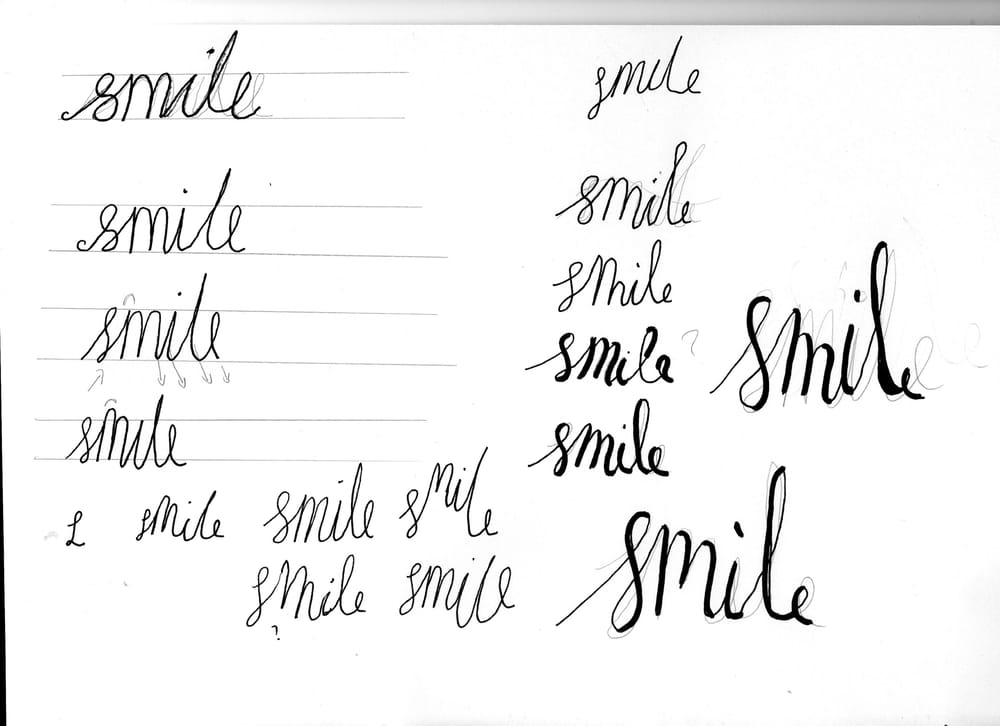 smile
smile
smile
smile
smile
smile
smile
smile ?
smile
smile
smile
smile smile smile
smile
smile smile
?